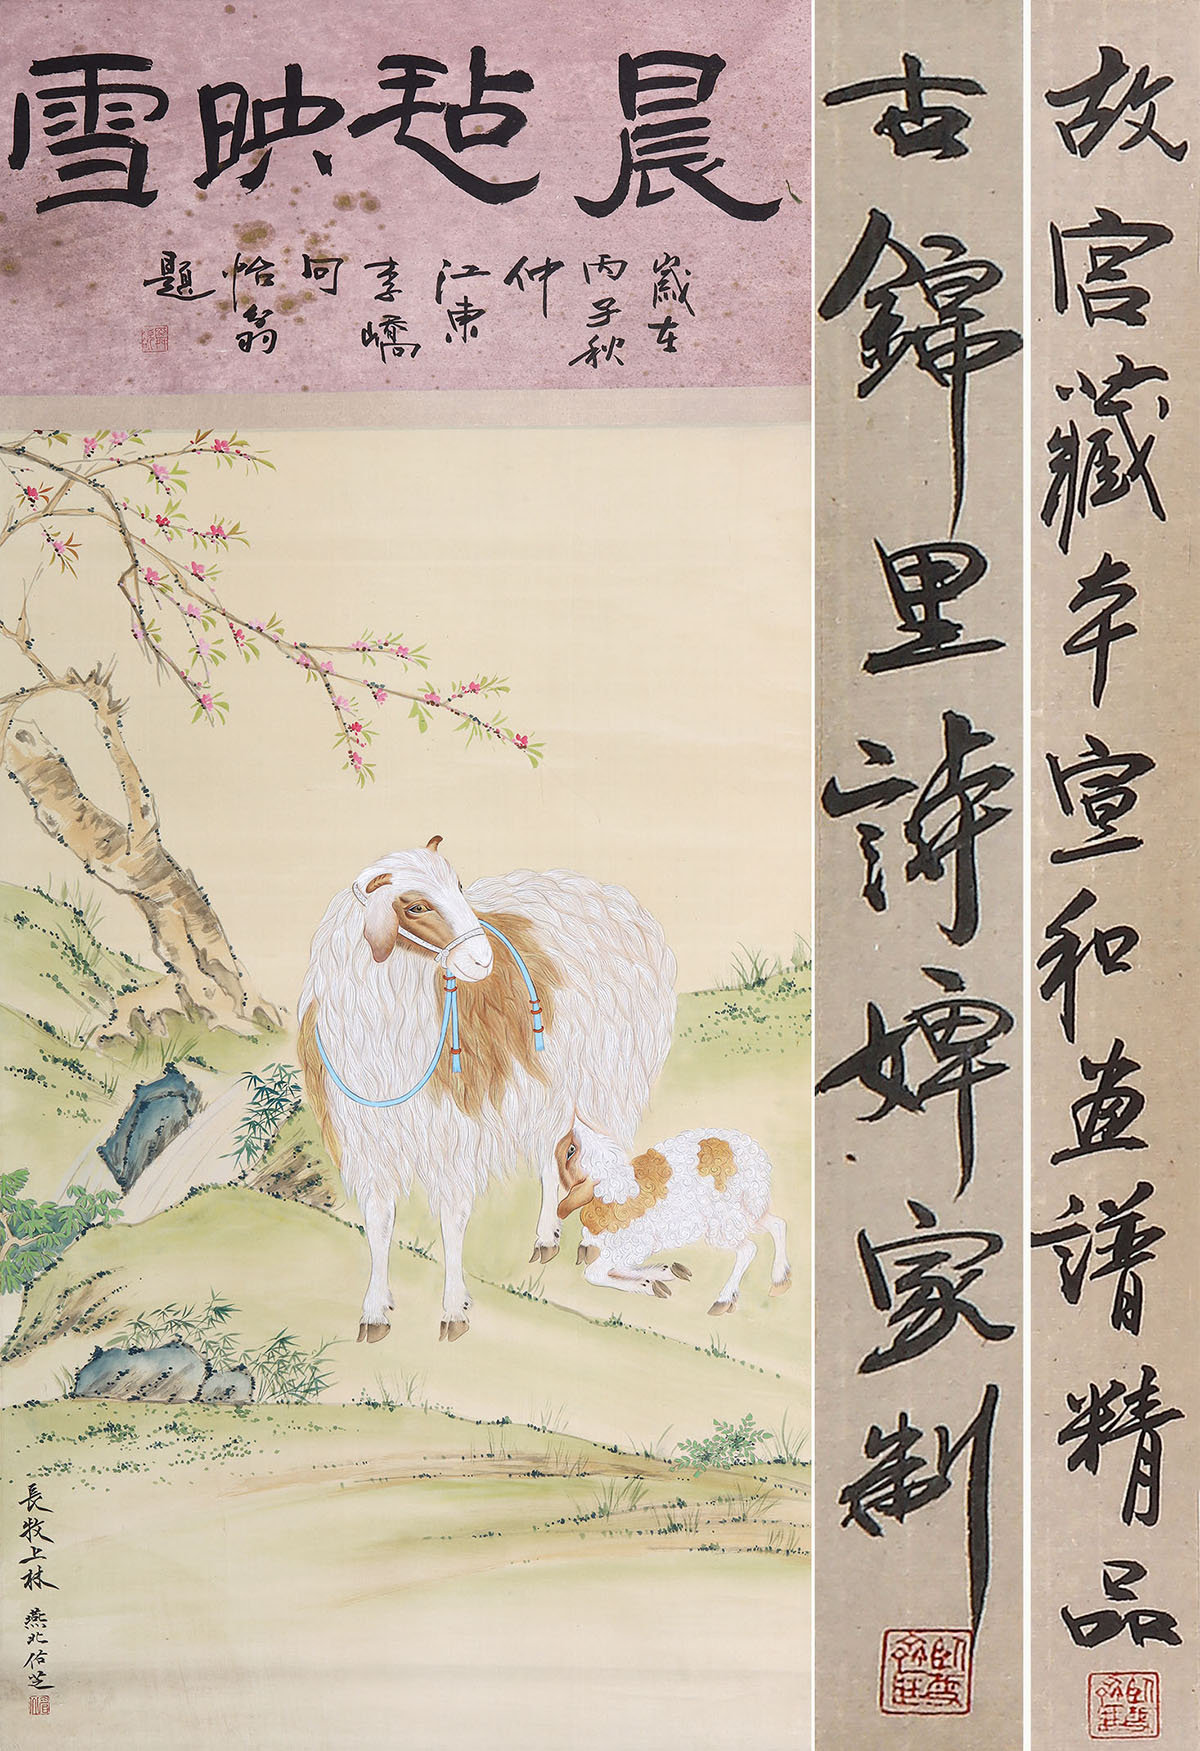 晨毡映雪
歲在
丙子秋
仲
江東
李嶠
句
怡翁
題
長牧上林 燕北佑芝
故宫藏本宣和畫譜精品
古錦里詩婢家制